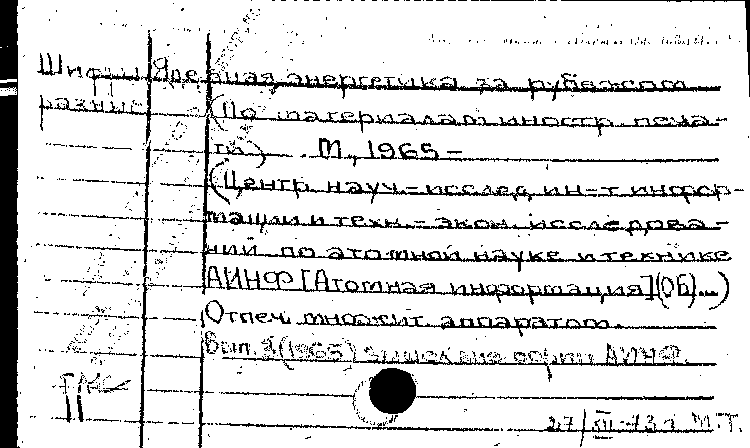 Шифры Ядерная энергетика за рубежом
разные (По материалам иностр. печа-
ти) . М., 1965 –
(Центр. науч.-исслед. ин-т инфор-
мации и техн.-экон. исследова-
ний по атомной науке и технике
АИНФ [Атомная информация] (Об)...)
Отпеч. множит. аппаратом.
Вып. 2 (1965) вышел вне серии АИНФ.
27/XII-73 г. М.Т.